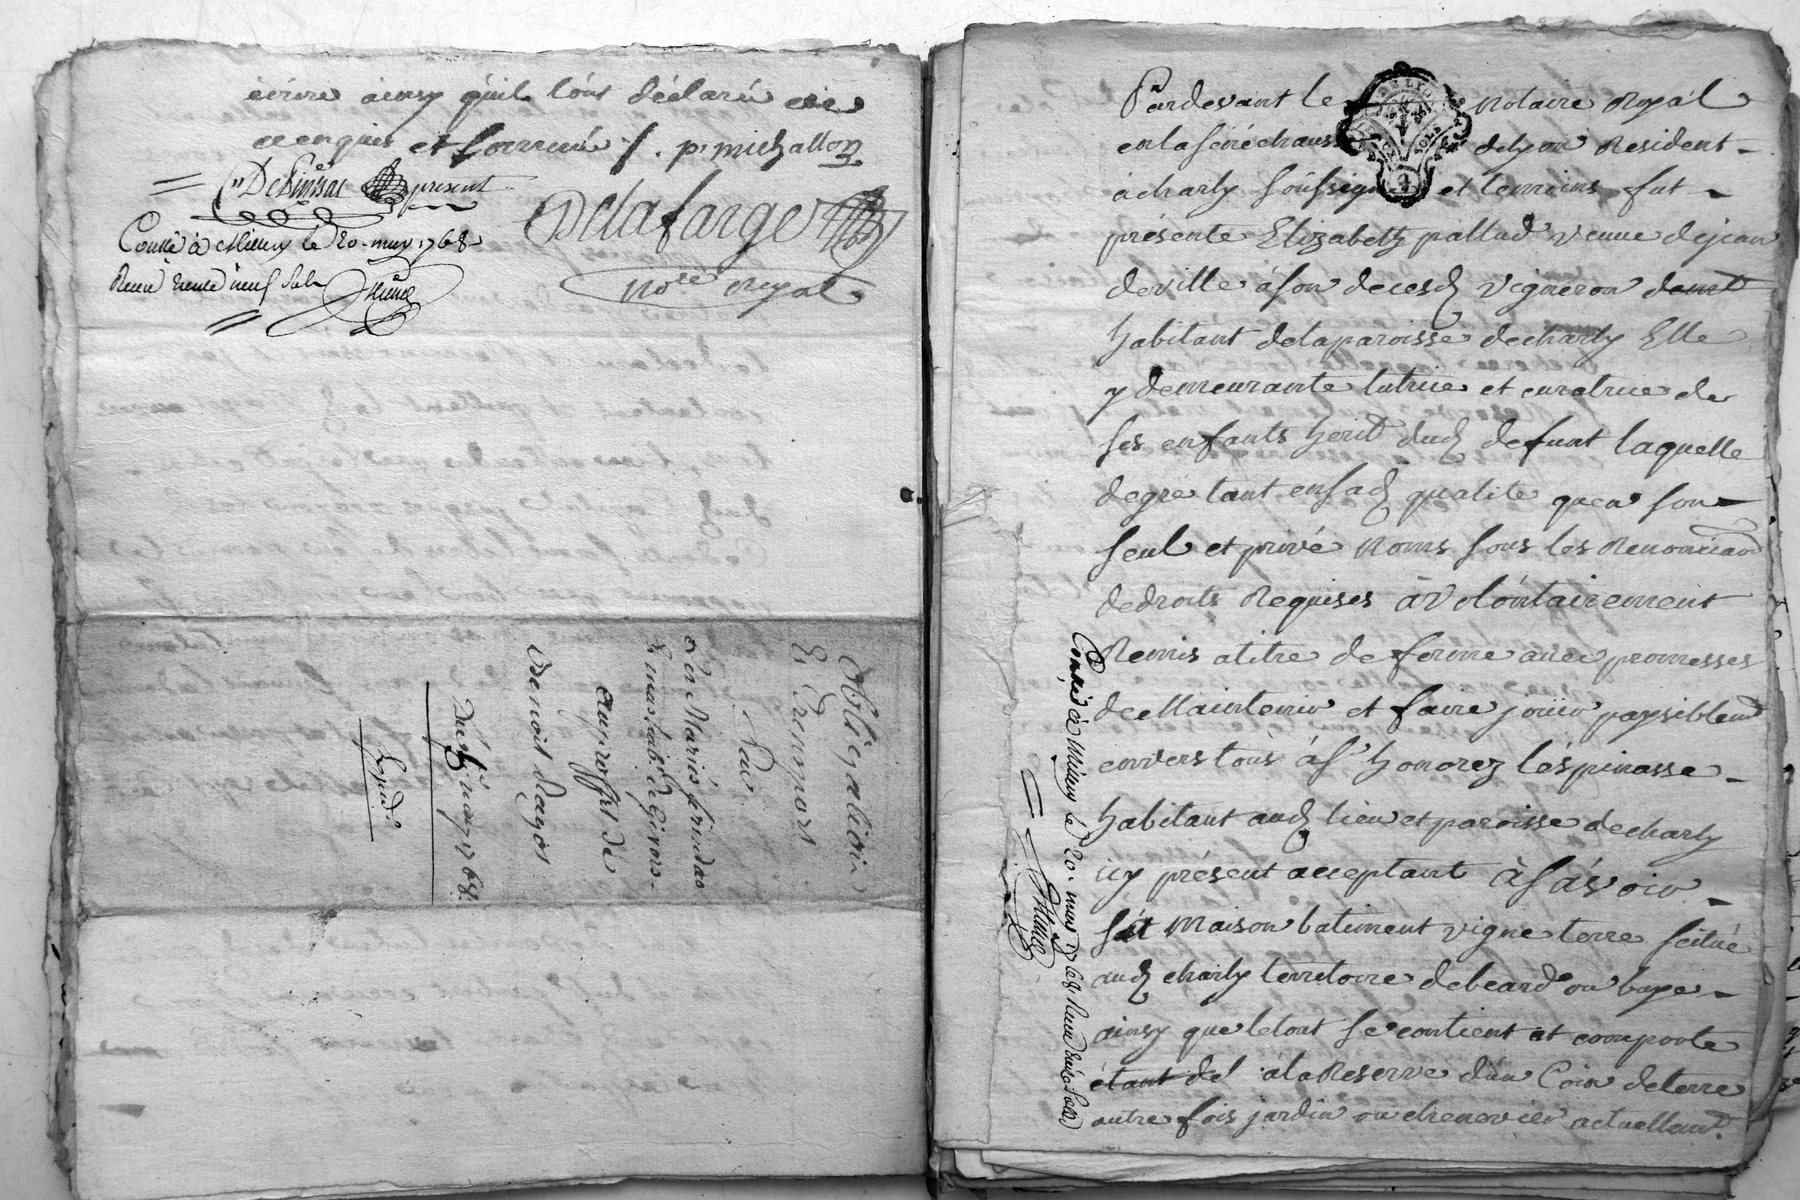 écrire ainsy qu'il l'ont déclaré
enquis et sommé p. michallon
present
Delafarge
Conllé à Millery le 20. may 1768
Receu trente neuf sols
no.re royal
Obligation
Et Transport
Par
Les Mariés
de Givors
au proffit de
Benoit
Du may 1768.
Expéd.
Pardevant le notaire Royal
en la sénéchaussé de lyon Resident
à charly soussigné et temoins fut
présente Elizabeth pallud veuve de jean
deville à son decesd vigneron
habitant de la paroisse de charly Elle
y demeurante tutrice et curatrice de
ses enfants herit dud defunt laquelle
de gre tant en sad qualite qu'en son
seul et privé nom sous les Renonciaon
de droits Requises à volóntairement
Remis a titre de ferme avec promesses
de Maintenir et faire jouir paysiblemt
envers tous à s.r honorez léspinasse
habitant aud lieu et paroisse de charly
icy présent acceptant à sávoir
maison batiment vigne terre scitué
aud charly territoire de beard ou baye
ainsy que le tout se contient et comporte
étant dé à la Reserve d'un Coin de terre
autre fois jardin ou chenevier actuellemt
Conllé à Millery le 20. may 1768 Receu sols